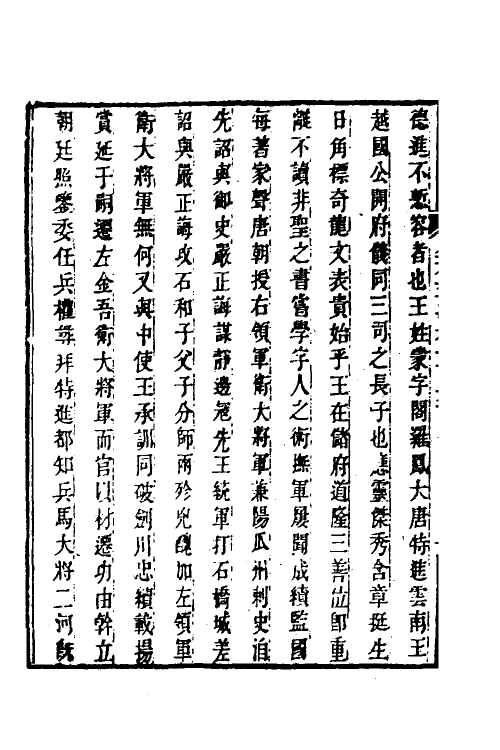 德進不慙容者也王姓蒙字閣羅鳳大唐特進雲南王
越國公開府儀同三司之長子也應靈傑秀含章挺生
日角標奇龍文表貴始乎王在儲府道隆三善位即重
離不讀非聖之書嘗學字人之術撫軍屢聞成績監國
每著家聲唐朝授右領軍衛大將軍兼陽瓜州刺史洎
先詔與御史嚴正誨謀靜邊寇先王統軍打石橋城差
詔與嚴正誨攻石和子父子分師兩殄兇醜加左領軍
衛大將軍無何又與中使王承訓同破劍川忠績載揚
賞延于嗣遷左金吾衛大將軍而官以材遷功由幹立
朝廷照鑒委任兵權尋拜特進都知兵馬大將二河旣